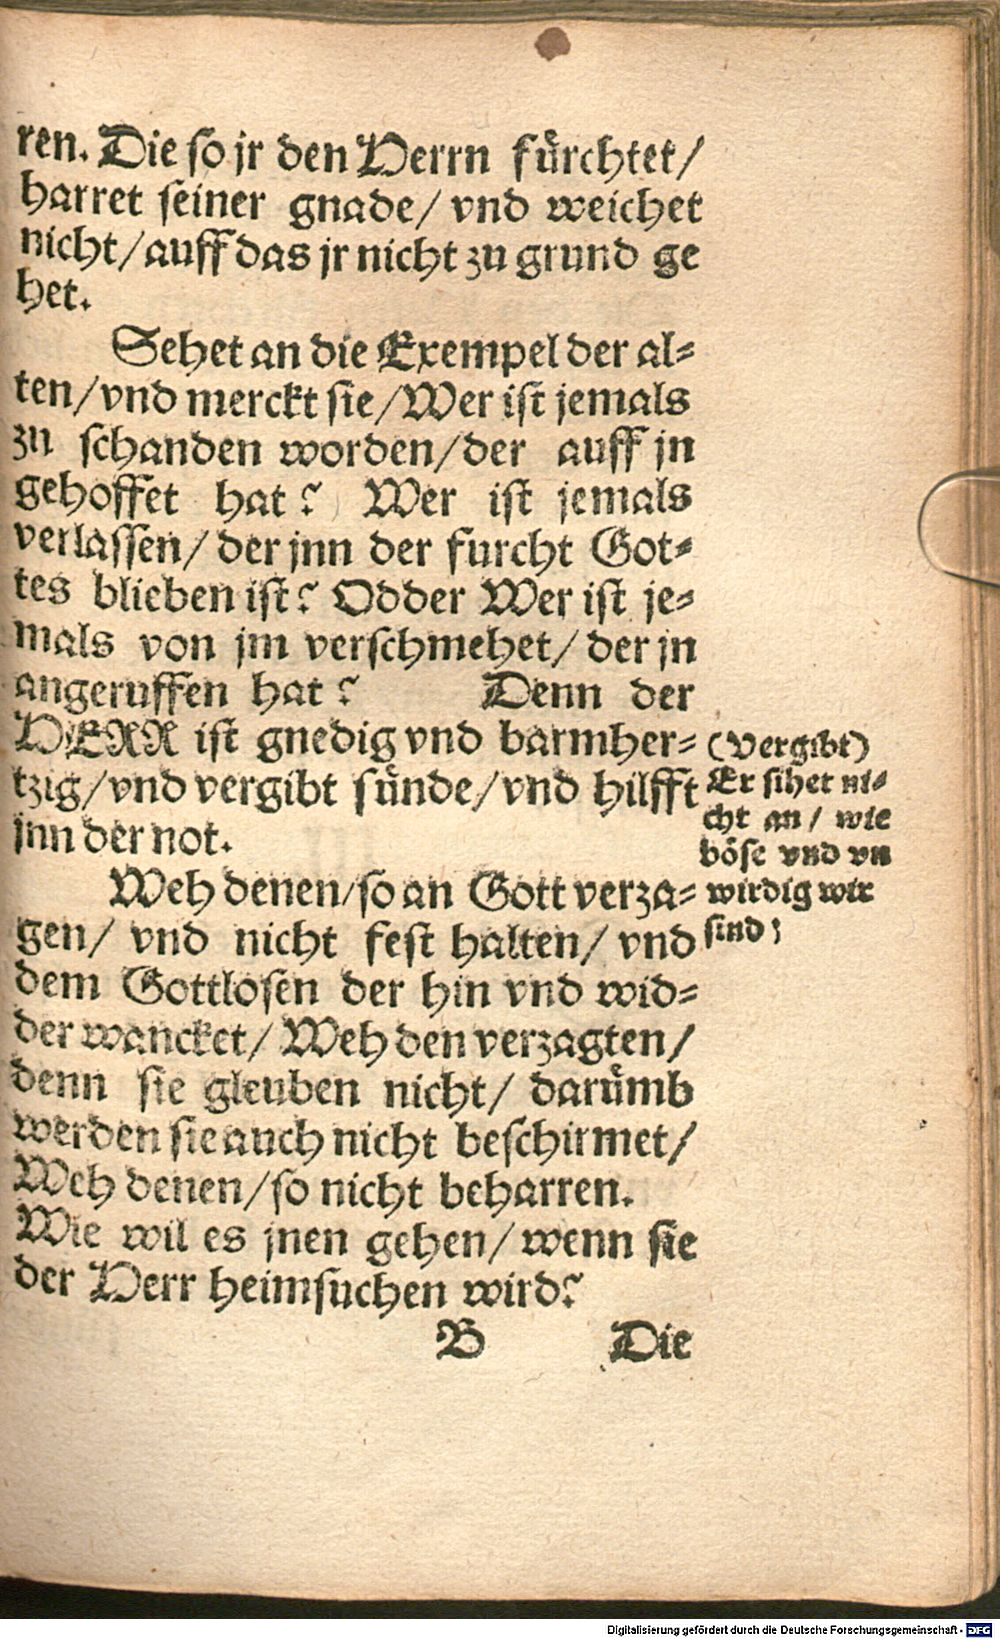 ren. Die so jr den Herrn fürchtet/
harret seiner gnade/ vnd weichet
nicht/ auff das jr nicht zu grund ge
het.
Sehet an die Exempel der al=
ten/ vnd merckt sie/ Wer ist jemals
zu schanden worden/ der auff jn
gehoffet hat? Wer ist jemals
verlassen/ der jnn der furcht Got=
tes blieben ist? Odder Wer ist je=
mals von jm verschmehet/ der jn
angeruffen hat? Denn der
HERR ist gnedig vnd barmher=
tzig/ vnd vergibt sünde/ vnd hilfft
jnn der not.
Weh denen/ so an Gott verza=
gen/ vnd nicht fest halten/ vnd
dem Gottlosen der hin vnd wid=
der wancket/ Weh den verzagten/
denn sie gleuben nicht/ darümb
werden sie auch nicht beschirmet/
Weh denen/ so nicht beharren.
Wie wil es jnen gehen/ wenn sie
der Herr heimsuchen wird?
B Die
(Vergibt)
Er sihet ni=
cht an/ wie
böse vnd vn
wirdig wir
sind;
Digitalisierung gefördert durch die Deutsche Forschungsgemeinschaft - DFG